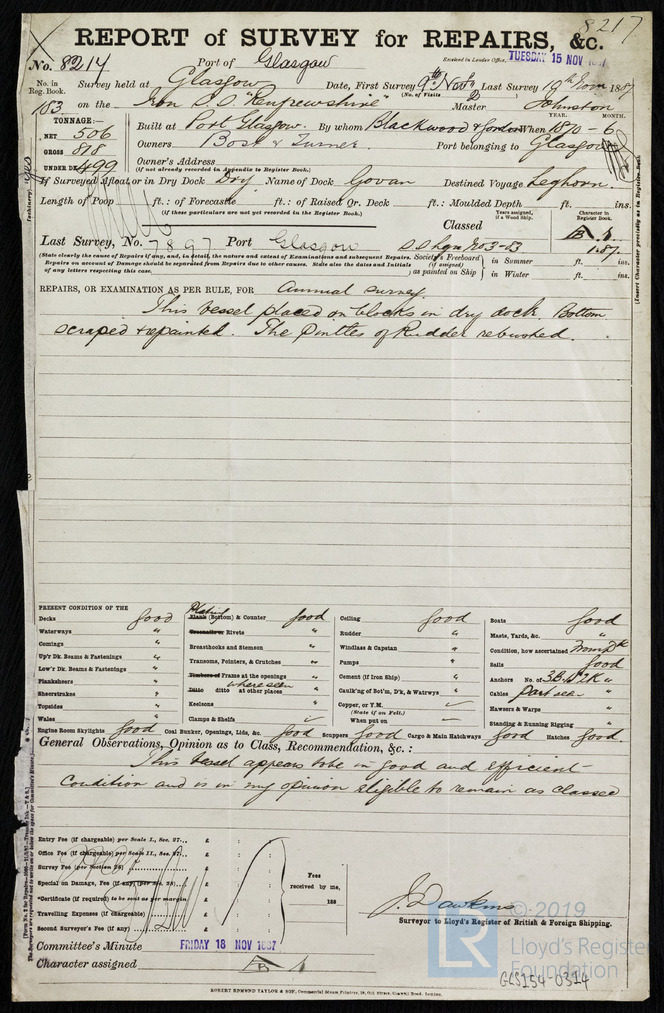 8217
REPORT of SURVEY for REPAIRS, &c.
No. 8214 Port of Glasgow Received in London Office, TUESDAY 15 NOV 1887
No. in Reg. Book. Survey held at Glasgow Date, First Survey 9th Novr Last Survey 1887
(No. of Visits 2)
183 on the Iron S.S. "Renfrewshire" Master Johnston
TONNAGE:— YEAR. MONTH.
NET 506 Built at Port Glasgow By whom Blackwood & Gordon When 1870 - 6
GROSS 818 Owners Port belonging to Glasgow
UNDER DK 499 Owner's Address
(if not already recorded in Appendix to Register Book.)
If Surveyed Afloat or in Dry Dock Dry Name of Dock Govan Destined Voyage Leghorn.
Length of Poop ft.: of Forecastle ft.: of Raised Qr. Deck ft.: Moulded Depth ft. ins.
(If these particulars are not yet recorded in the Register Book.)
Classed Years assigned, if a Wood Ship. Character in Register Book.
Last Survey, No. 7897 Port Glasgow
1.87
(State clearly the cause of Repairs if any, and, in detail, the nature and extent of Examinations and subsequent Repairs.
Repairs on account of Damage should be separated from Repairs due to other causes. State also the dates and Initials
of any letters respecting this case.
Society's Freeboard (if assigned) as painted on Ship in Summer ft. ins.
in Winter ft. ins.
(Insert Character precisely as in Register Book.)
REPAIRS, OR EXAMINATION AS PER RULE, FOR Annual survey.
This vessel placed on blocks in dry dock. Bottom
scraped & repainted. The Pintles of Rudder rebushed.
PRESENT CONDITION OF THE
Decks good
Waterways "
Comings "
Up'r Dk. Beams & Fastenings "
Low'r Dk. Beams & Fastenings "
Plankshears "
Sheerstrakes "
Topsides "
Wales "
Engine Room Skylights good
Plating
Plank (Bottom) & Counter good
Treenails or Rivets "
Breasthooks and Stemson "
Transoms, Pointers, & Crutches "
Timbers or Frames at the openings "
where seen
Ditto ditto at other places "
Keelsons "
Clamps & Shelfs ✓
Coal Bunker, Openings, Lids, &c. good
Ceiling good
Rudder "
Windlass & Capstan "
Pumps "
Cement (if Iron Ship) "
Caulk'ng of Bot'm, D'k, & Watrwys "
Copper, or Y.M. ✓
(State if on Felt.)
When put on ✓
Scuppers good Cargo & Main Hatchways good
Boats good
Masts, Yards, &c. "
Condition, how ascertained From Dk
Sails good
Anchors No. of 3B. 1S. 2K "
Cables Part seen
Hawsers & Warps "
Standing & Running Rigging "
Hatches good
General Observations, Opinion as to Class, Recommendation, &c. :
This vessel appears to be in good and efficient
condition and is in my opinion eligible to remain as classed
Entry Fee (if chargeable) per Scale I., Sec. 27... £ : :
Office Fee (if chargeable) per Scale II., Sec. 27... £ : :
Survey Fee (per Section 28) £ : :
Special on Damage, Fee (if any) (per Sec. 28) £ : :
Certificate (if required) to be sent as per margin
Travelling Expenses (if chargeable) £ : :
Second Surveyor's Fee (if any) £ : :
Fees received by me, 188
J. Dawkins
Surveyor to Lloyd's Register of British & Foreign Shipping.
Committee's Minute FRIDAY 18 NOV 1887
Character assigned
GCS154-0314
LR
© 2019
Lloyd's Register
Foundation
ROBERT EDMUND TAYLOR & SON, Commercial Steam Printers, 19, Old Street, Goswell Road, London.